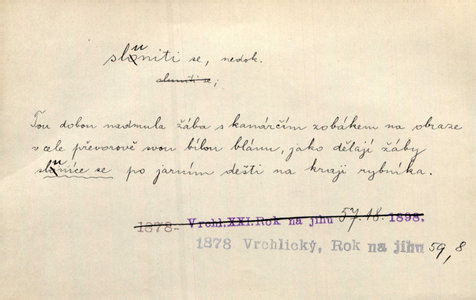 sluniti se, nedok.
sluniti se;
Tou dobou nadmula žába s kanárčím zobákem na obraze
v cele převorově svou bílou blánu, jako dělají žáby
sluníce se po jarním dešti na kraji rybníka.
1878- Vrchl.XXI.Rok na jihu 57.18. 1898.
1878 Vrchlický, Rok na jihu 59,8